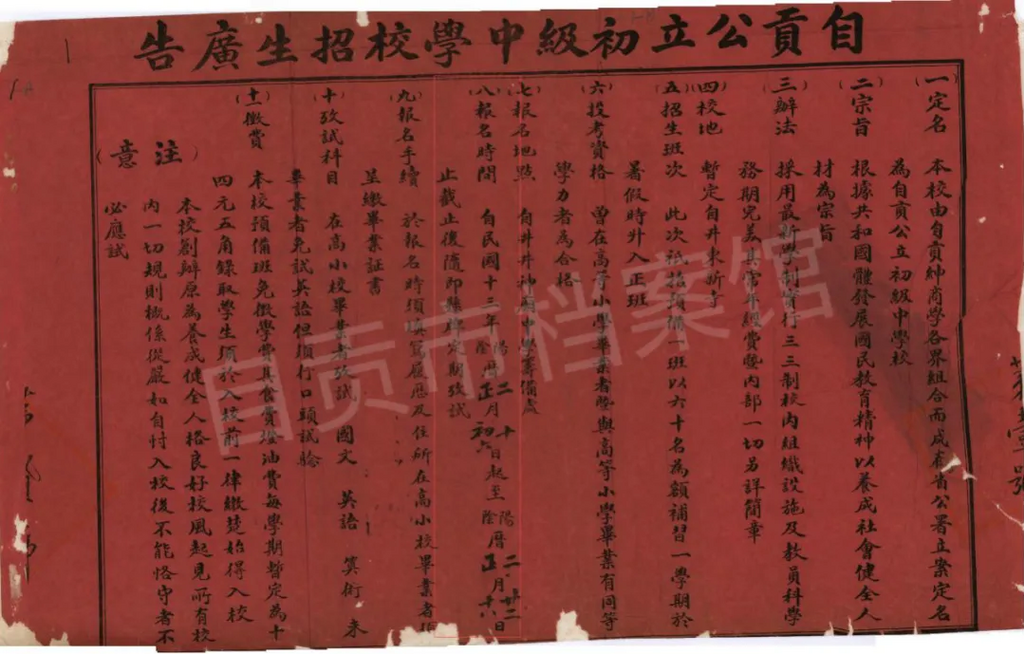 自貢公立初級中學校招生廣告
(一)定名 本校由自貢紳商學各界組合而成奉省公署立案定名
為自貢公立初級中學校
(二)宗旨 根據共和國體發展國民教育精神以養成社會健全人
材為宗旨
(三)辦法 採用最新學制實行三三制校內組織設施及教員科學
務期完美其常年經費暨內部一切另詳簡章
(四)校地 暫定自井東新寺
(五)招生班次 此次祇招預備一班以六十名為額補習一學期於
暑假時升入正班
(六)投考資格 曾在高等小學畢業者暨與高等小學畢業有同等
學力者為合格
(七)報名地點 自井井神廟中學籌備處
(八)報名時間 自民國十三年陽曆二月十日陰曆正月初六日起至陽曆二月廿二日陰曆正月十八日
止截止後隨即懸牌定期攷試
(九)報名手續 於報名時須填寫履歷及住所在高小校畢業者須
呈繳畢業証書
(十)攷試科目 在高小校畢業者攷試 國文 英語 算術 未
畢業者免試英語但須行口頭試驗
(十一)繳費 本校預備班免繳學費其食費燈油費每學期暫定為十
四元五角錄取學生須於入校前一律繳楚始得入校
(注意) 本校創辦原為養成健全人格良好校風起見所有校
內一切規則概係從嚴如自忖入校後不能恪守者不
必應試
自贡市档案馆